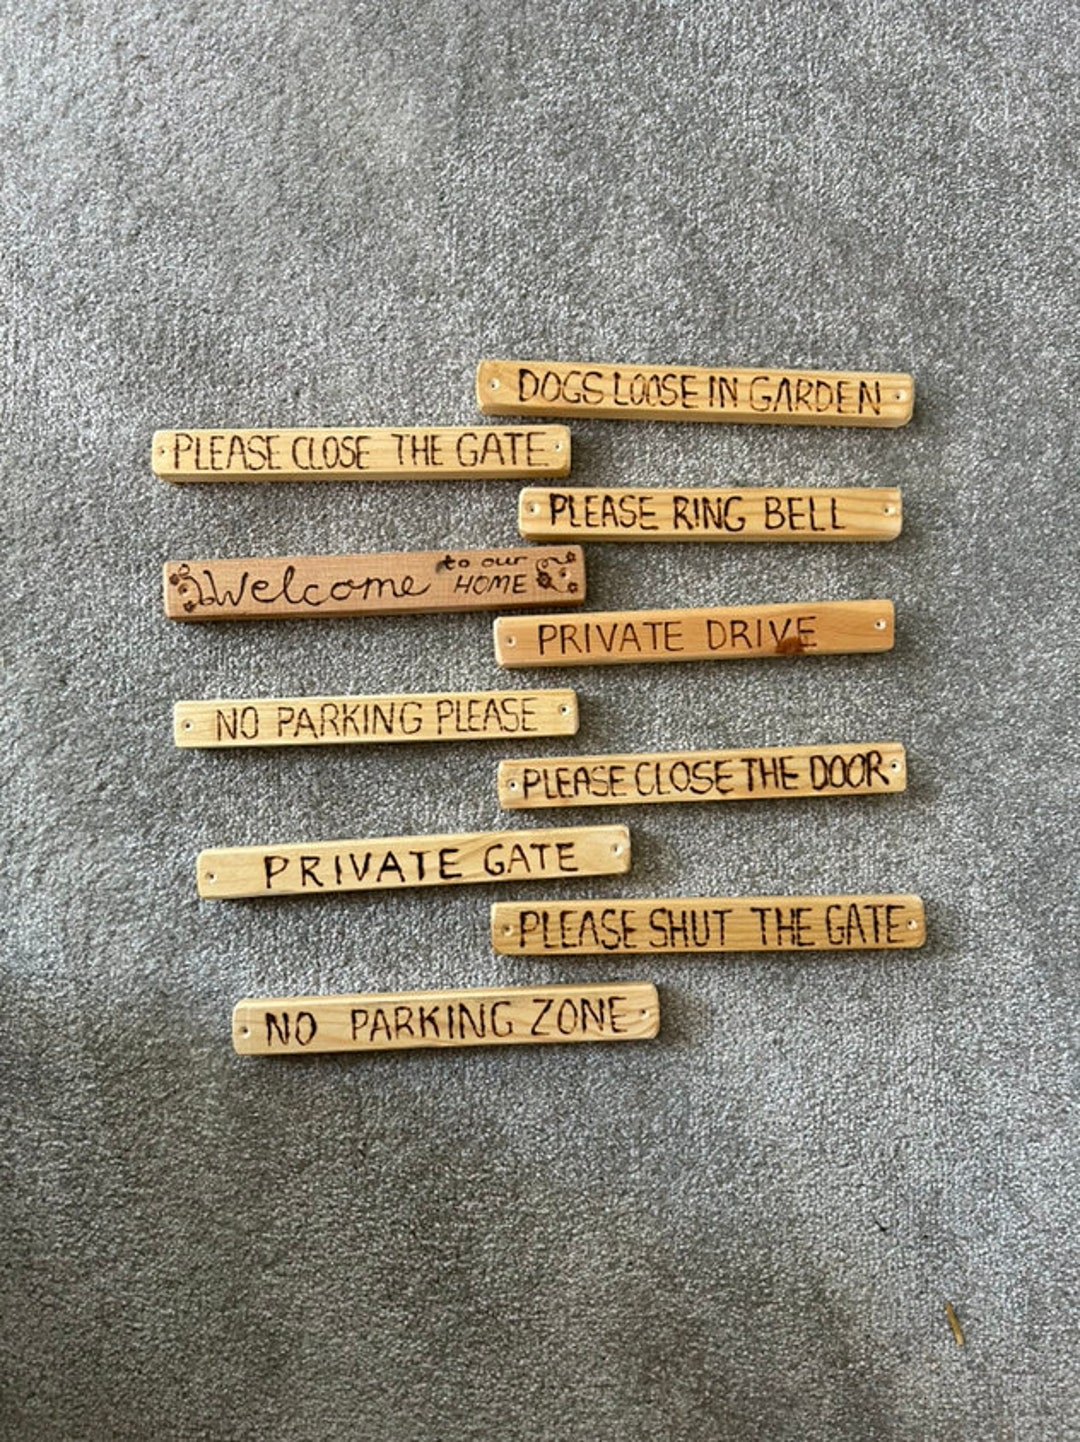 DOGS LOOSE IN GARDEN
PLEASE CLOSE THE GATE
PLEASE RING BELL
Welcome to our HOME
PRIVATE DRIVE
NO PARKING PLEASE
PLEASE CLOSE THE DOOR
PRIVATE GATE
PLEASE SHUT THE GATE
NO PARKING ZONE